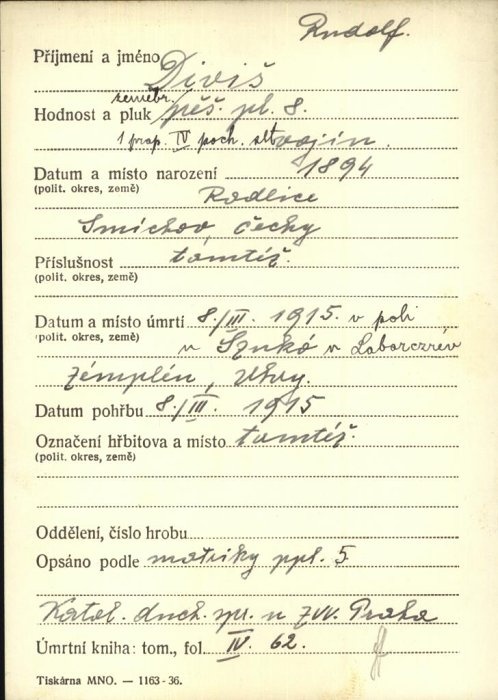 Rudolf.
Příjmení a jméno Diviš
zeměbr.
Hodnost a pluk pěš. pl. 8.
1 prap. IV poch. vojín.
Datum a místo narození 1894
(polit. okres, země) Radlice
Smíchov, Čechy
Příslušnost tamtéž.
(polit. okres, země)
Datum a místo úmrtí 8./III. 1915. v poli
(polit. okres, země) u Szukó u Laborczrév
Zémplén, Uhry.
Datum pohřbu 8./III. 1915
Označení hřbitova a místo tamtéž.
(polit. okres, země)
Oddělení, číslo hrobu
Opsáno podle matriky ppl. 5
Katol. duch. spr. u ZVV. Praha
Úmrtní kniha: tom., fol. IV. 62.
Tiskárna MNO. — 1163-36.